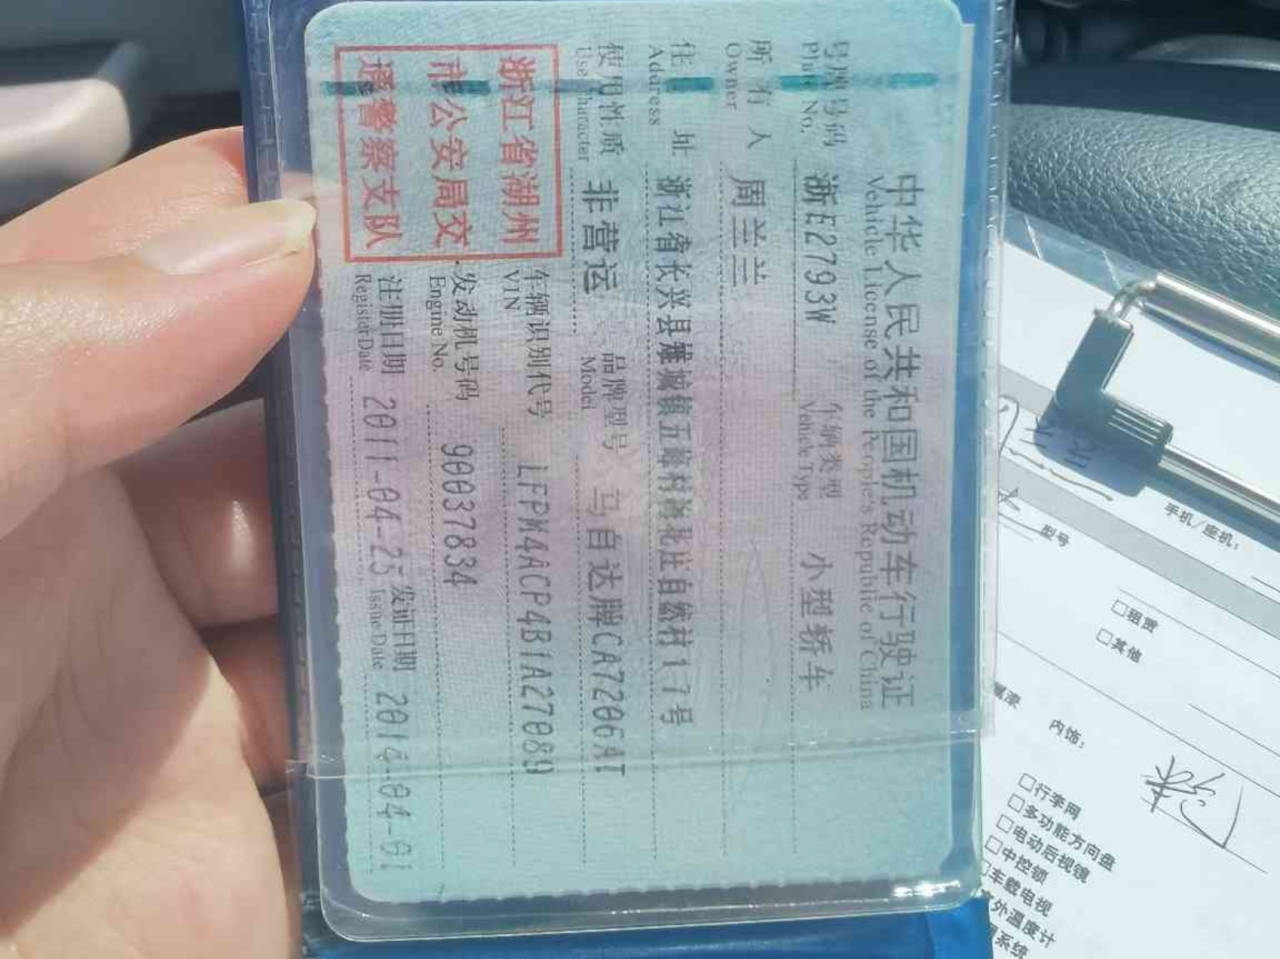 中华人民共和国机动车行驶证
Vehicle License of the People's Republic of China
号牌号码 浙E2793W 车辆类型 小型轿车
Plate No. Vehicle Type
所有人 周兰兰
Owner
住址 浙江省长兴县雉城镇五峰村杨北庄自然村17号
Address
使用性质 非营运 品牌型号 马自达牌CA7206AT
Use Character Model
浙江省湖州
市公安局交
通警察支队
车辆识别代号 LFPM4ACP4B1A27089
VIN
发动机号码 90037834
Engine No.
注册日期 2011-04-25 发证日期 2014-04-01
Register Date Issue Date
手机/座机：
型号
□租赁
□其他
内饰：
□行李网
□多功能方向盘
□电动后视镜
□中控锁
□车载电视
外温度计
系统